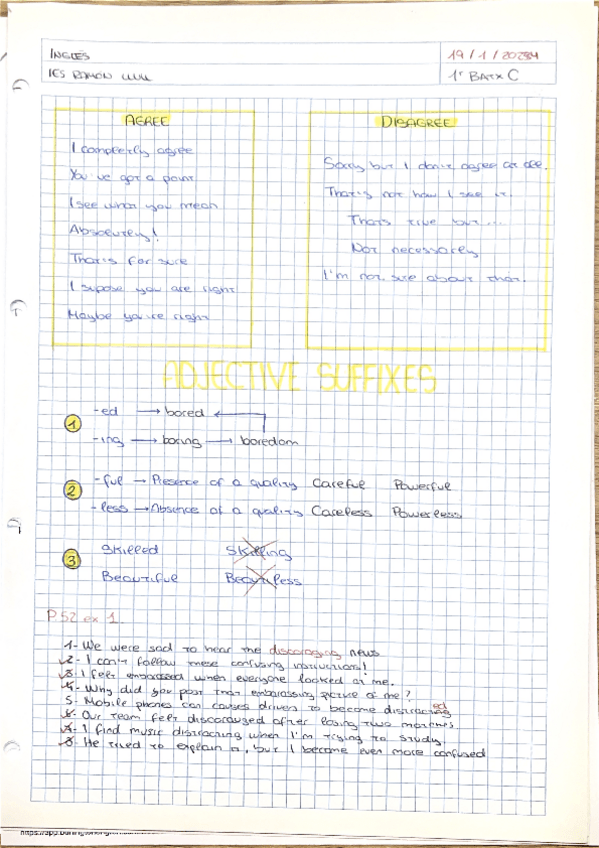 INGLÉS
19/1/2024
IES RAMÓN LLULL
1r BATX C
AGREE
I completly agree
You've got a point
I see what you mean
Absolutely!
That's for sure
I supose you are right
Maybe you're right
DISAGREE
Sorry but I don't agree at all.
That's not how I see it.
That's true but...
Not necessarily
I'm not sure about that.
ADJECTIVE SUFFIXES
1
-ed → bored
-ing → boring → boredom
2
-ful → Presence of a quality Careful Powerful
-less → Absence of a quality Careless Powerless
3
Skilled Skilling
Beautiful Beautiless
P52 ex 1
1- We were sad to hear the discoraging news
2- I can't follow these confusing instructions!
3- I felt embarassed when everyone looked at me.
4- Why did you post that embarassing picture of me?
5- Mobile phones can causes drivers to become distracting ed
6- Our team felt discouraged after losing two matches
7- I find music distracting when I'm trying to study.
8- He tried to explain it, but I became even more confused